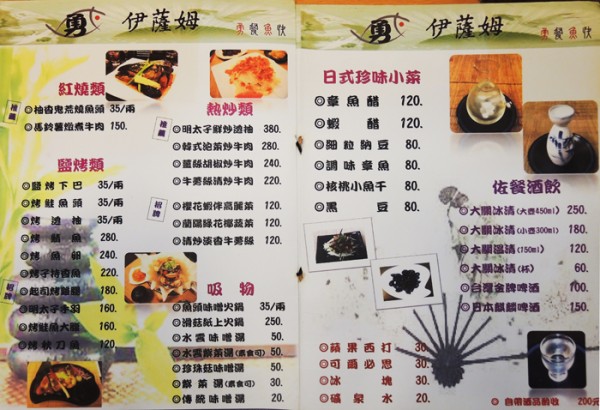 勇 伊薩姆
紅燒類
推薦
◎柚香鬼荒燒魚頭 35/兩
◎馬鈴薯燉煮牛肉 150.
鹽烤類
◎鹽烤下巴 35/兩
◎烤鮭魚頭 35/兩
◎烤鯖魚 280.
◎烤魚卵 240.
◎烤子持香魚 220.
招牌
◎起司烤雞腿 180.
◎明太子手羽 160.
◎烤鮭魚大腸 160.
◎烤秋刀魚 120.
熱炒類
推薦
◎明太子鮮炒渣抽 380.
◎韓式泡菜炒牛肉 280.
◎薑絲胡椒炒牛肉 240.
◎牛蒡絲清炒牛肉 220.
招牌
◎櫻花蝦伴高麗菜 120.
◎蘭陽綠花椰蔬菜 120.
◎清炒淡香牛蒡絲 120.
吸物
◎魚頭味噌火鍋 35/兩
◎滑菇紙上火鍋 250.
◎水雲味噌湯 50.
◎水雲鮮菜湯(素食可) 50.
◎珍珠菇味噌湯 50.
◎鮮菜湯(素食可) 30.
◎傳統味噌湯 20.
勇 伊薩姆
日式珍味小菜
◎章魚醋 120.
◎蝦醋 120.
◎細粒納豆 80.
◎調味章魚 80.
◎核桃小魚干 80.
◎黑豆 80.
佐餐酒飲
◎大關冰清(大壺450ml) 250.
◎大關冰清(小壺300ml) 180.
◎大關溫清(750ml) 120.
◎大關冰清(杯) 60.
◎台灣金牌啤酒 100.
◎日本麒麟啤酒 150.
◎蘋果西打 30.
◎可爾必思 30.
◎冰塊 30.
◎礦泉水 20.
◎自帶酒品酌收 200元